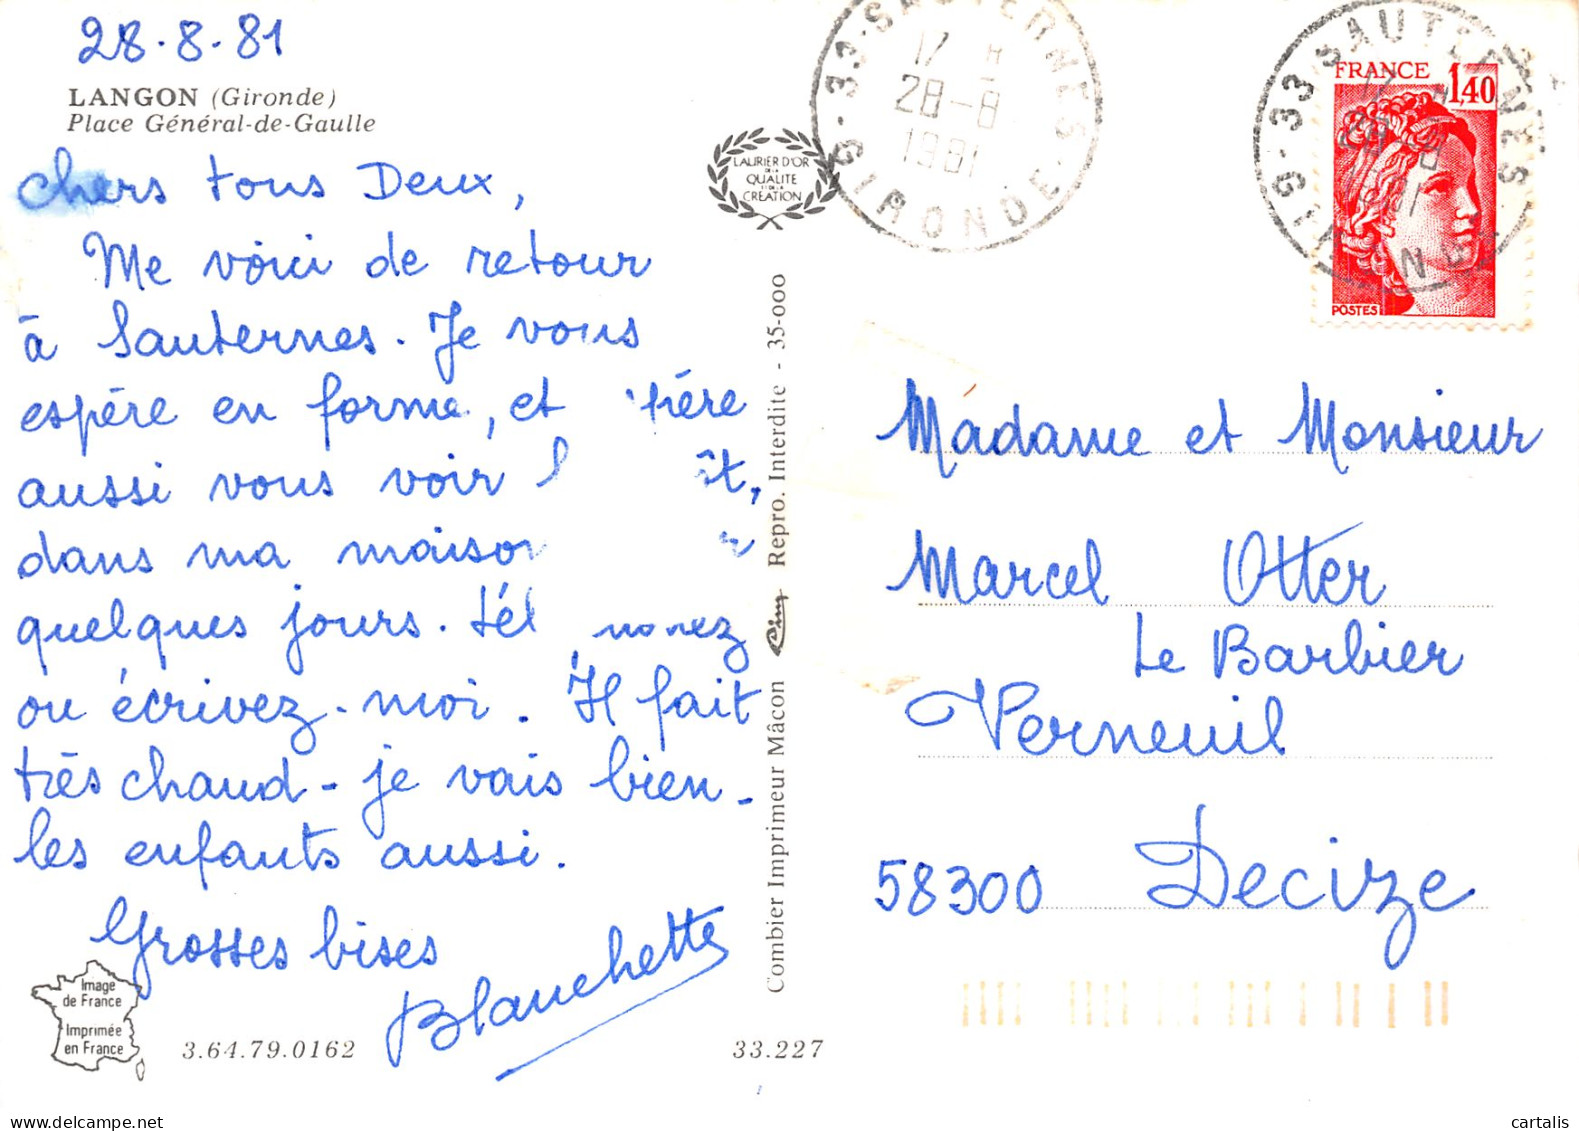 28.8.81
LANGON (Gironde)
Place Général-de-Gaulle
Chers tous Deux,
Me voici de retour
à Sauternes. Je vous
espère en forme, et
aussi vous voir
dans ma maison
quelques jours.
ou écrivez-moi. Il fait
très chaud - je vais bien -
les enfants aussi.
Grosses bises
Blanchette
Image
de France
Imprimée
en France
3.64.79.0162
33.227
LAURIER D'OR
DE LA
QUALITE
ET DE LA
CREATION
Combier Imprimeur Mâcon Cim Repro. Interdite - 35-000
33 SAUTERNES
17 H
28-8
1981
GIRONDE
33 SAUTERNES
17 H
28-8
1981
GIRONDE
FRANCE
1,40
POSTES
Madame et Monsieur
Marcel Otter
Le Barbier
Verneuil
58300 Decize
www.cartalis.com
cartalis